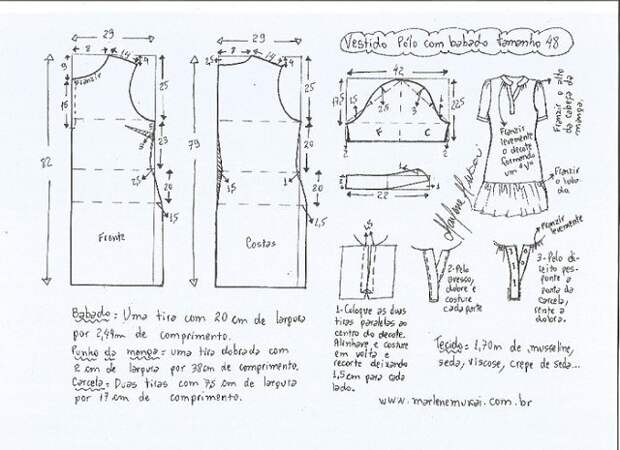 Vestido Pólo com babado tamanho 48
29
8
14
4
9
Franzir
25
16
23
82
15
20
1,5
Frente
29
2,5
8
14
4
25
79
15
20
1,5
Costas
42
17,5
15
2,5
3
1
22,5
F
C
2
2
22
1
Franzir o alto
da cabeça da
manga.
Franzir
levemente
o decote
formando
um ovo
Franzir
o baba
do
Marlene Mukai
Franzir levemente
1-Coloque as duas
tiras paralelas ao
centro do decote.
Alinhave e costure
em volta e
recorte deixando
1,5cm para cada
lado.
2-Pelo
avesso,
dobre e
costure
cada parte
3-Pelo di-
reito pes-
ponte a
ponta da
carcela,
rente a
dobra.
Babado: Uma tira com 20 cm de largura
por 2,44m de comprimento.
Punho da manga: uma tira dobrada com
2 cm de largura por 38cm de comprimento.
Carcela: Duas tiras com 7,5 cm de largura
por 17 cm de comprimento.
Tecido: 1,70m de musseline,
seda, viscose, crepe de seda...
www.marlenemukai.com.br